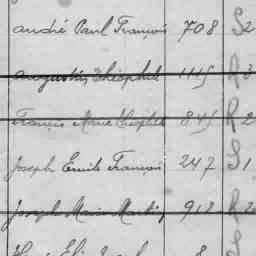 André Paul François 708 S2
Augustin Théophile 1115 R3
François Marie Théophile 841 R2
Joseph Emile François 247 S1
Joseph Marie 912 R2